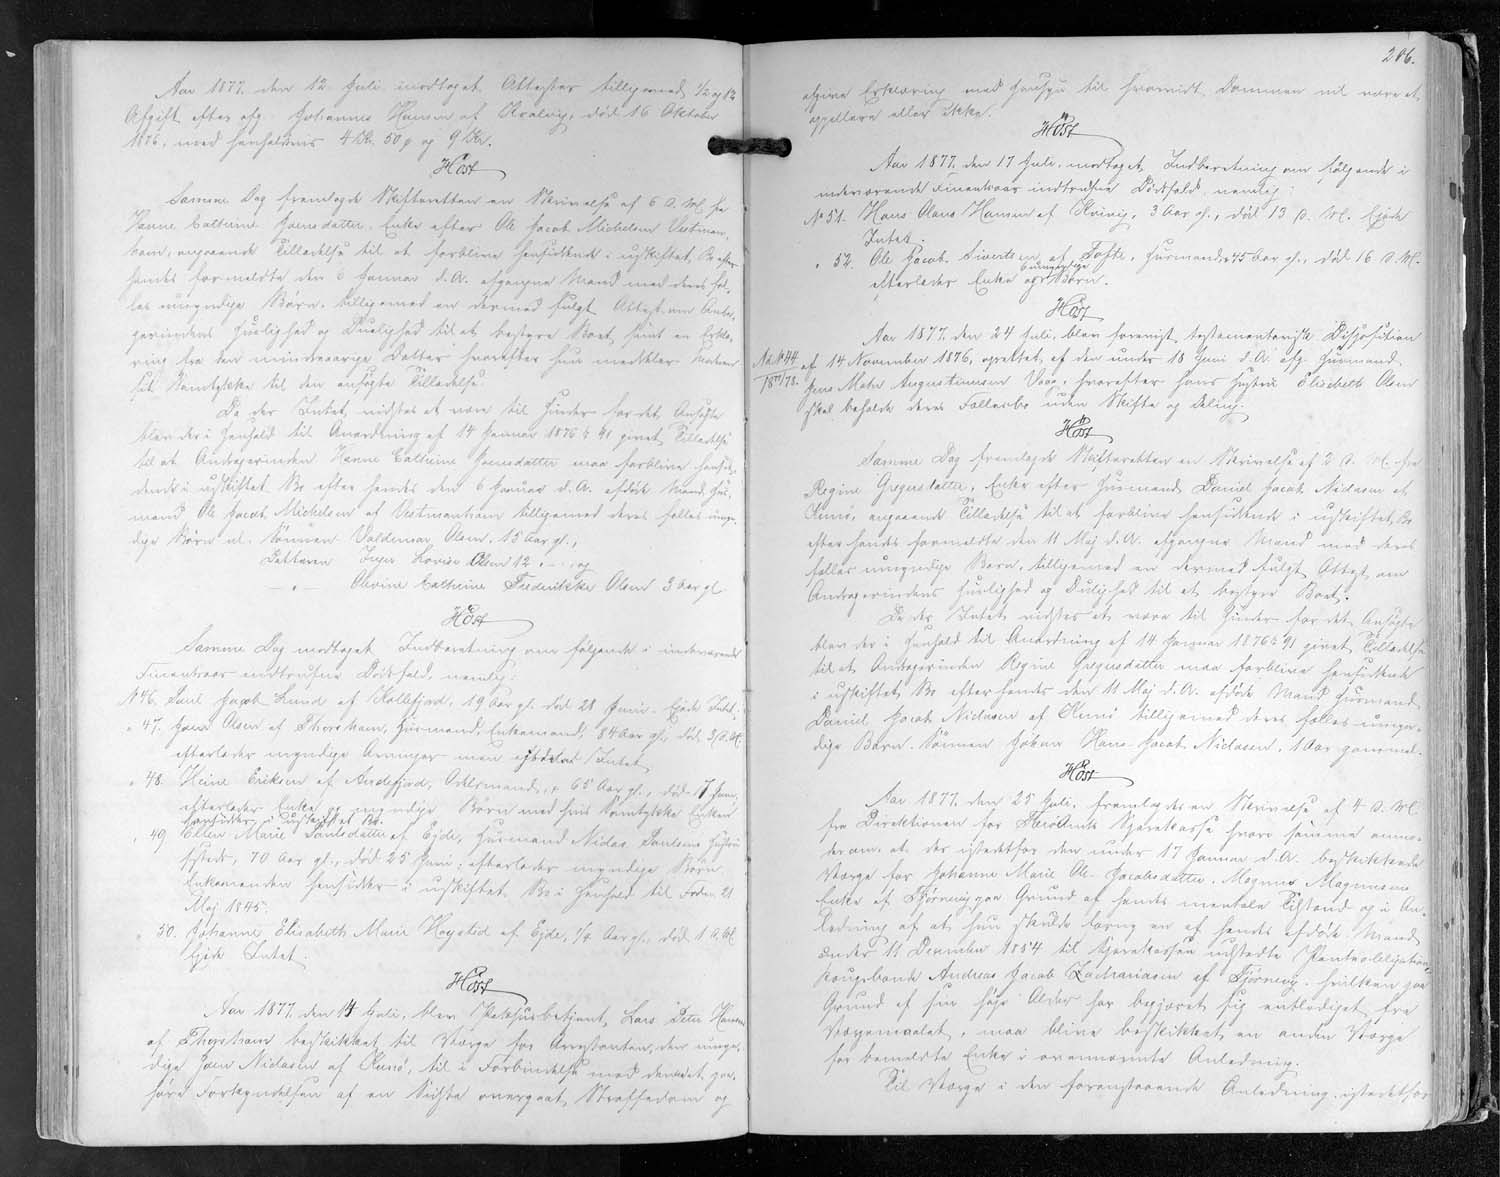 Aar 1877, den 12 Juli modtoges Attester tilligemed ½ og 1 %
Afgift efter afg. Johannes Hansen af Kvalvig, død 16 Oktober
1876, med henholdsvis 4 Kr. 50 ø og 9 Kr.
Høst
Samme Dag fremlagde Skifteretten en Skrivelse af 6 d. M. fra
Hanne Cathrine Joensdatter, Enke efter Ole Jacob Michelsen Vestman-
havn, angaaende Tilladelse til at forblive hensiddende i uskiftet Bo efter
hendes formeldte den 6 Januar d.A. afgangne Mand med deres fæl-
les umyndige Børn, tilligemed en dermed fulgt Attest om Andra-
gerindens Huslighed og Duelighed til at bestyre Boet, samt en Erklæ-
ring fra den mindreaarige Datter hvorefter hun meddeler Moderen
sit Samtykke til den ansøgte Tilladelse.
Da der Intet vidstes at være til Hinder for det Ansøgte
blev der i Henhold til Anordning af 14 Januar 1876 § 91 givet Tilladelse
til at Andragerinden Hanne Cathrine Joensdatter maa forblive hensid-
dende i uskiftet Bo efter hendes den 6 Januar d.A. afdøde Mand, Huus-
mand Ole Jacob Michelsen af Vestmanhavn tilligemed deres fælles umyn-
dige Børn nl. Sønnen Valdemar Olsen, 15 Aar gl.,
Datteren Inger Lovise Olsen 12 - - og
- " - Olevine Cathrine Frederikke Olsen 3 Aar gl.
Høst
Samme Dag modtoges Indberetning om følgende i indeværende
Finantsaar indtrufne Dødsfald, nemlig:
No 46. Poul Jacob Lund af Kollefjord, 19 Aar gl. død 28 Juni - Ejede Intet;
" 47. Joen Olsen af Thorshavn, Huusmand, Enkemand, 84 Aar gl., død 3 d. M.
efterlader myndige Arvinger men Intet
" 48. Heine Eriksen af Andefjord, Odelsmand, 65 Aar gl., død 7 Juni,
efterlader Enke og myndige Børn med hvis Samtykke Enken
hensidder i uskiftet Bo.
" 49. Ellen Marie Poulsdatter af Ejde, Huusmand Niclas Poulsens Hustru
sstds., 70 Aar gl., død 25 Juni: efterlader myndige Børn.
Enkemanden hensidder i uskiftet Bo i Henhold til Frdn. 21
Maj 1845.
" 50. Johanne Elisabeth Marie Høgsted af Ejde, ¼ Aar gl., død 1 d. M.
Ejede Intet.
Høst
Aar 1877, den 14 Juli, blev Politibetjent, Lars Peter Hansen
af Thorshavn beskikket til Værge for Arrestanten, den umyn-
dige Joen Niclasen af Kunø, til i Forbindelse med denne at paa-
høre Forkyndelsen af en Sidste overgaaet Straffedom og
206.
afgive Erklæring med Hensyn til hvorvidt Dommen vil være at
appellere eller ikke.
Høst
Aar 1877, den 17 Juli, modtoges Indberetning om følgende i
indeværende Finantsaar indtrufne Dødsfald, nemlig:
No 51. Hans Claus Hansen af Kvivig, 3 Aar gl., død 13 d. M. Ejede
Intet.
" 52. Ole Jacob Sivertsen af Tofte, Huusmand, 45 Aar gl., død 16 d. M.
efterlader Enke og umyndige Børn.
Høst
Aar 1877, den 24 Juli, blev forevist testamentarisk Disposition
Nd. No 44 af 14 November 1876, oprettet af den under 18 Juni d.A. afg. Huusmand
1877/78. Jens Mohr Augustinussen Vaag, hvorefter hans Hustru Elisabeth Olsen
skal beholde deres Fællesbo uden Skifte og Deling.
Høst
Samme Dag fremlagde Skifteretten en Skrivelse af 2 d. M. fra
Regine Gregersdatter, Enke efter Huusmand Daniel Jacob Niclasen af
Kunø, angaaende Tilladelse til at forblive hensiddende i uskiftet Bo
efter hendes formeldte den 11 Maj d.A. afgangne Mand med deres
fælles umyndige Børn, tilligemed en dermed fulgt Attest om
Andragerindens Huslighed og Duelighed til at bestyre Boet.
Da der Intet vidstes at være til Hinder for det Ansøgte
blev der i Henhold til Anordning af 14 Januar 1876 § 91 givet Tilladelse
til at Andragerinden Regine Gregersdatter maa forblive hensiddende
i uskiftet Bo efter hendes den 11 Maj d.A. afdøde Mand Huusmand
Daniel Jacob Niclasen af Kunø tilligemed deres fælles umyn-
dige Barn, Sønnen Johan Hans Jacob Niclasen, 1 Aar gammel.
Høst
Aar 1877, den 25 Juli, fremlagdes en Skrivelse af 4 d. M.
fra Direktionen for Færø Amts Sparekasse hvori samme anmo-
der om, at der istedetfor den under 17 Januar d.A. beskikkede
Værge for Johanne Marie Ole Jacobsdatter, Magnus Magnussens
Enke af Fjørnevig, paa Grund af hendes mentale Tilstand og i An-
ledning af at hun skulde forny en af hendes afdøde Mand
under 11 December 1854 til Sparekassen udstedte Panteobligation,
Kongsbonde Andreas Jacob Zachariasen af Fjørnevig, hvilken paa
Grund af sin høje Alder har begjæret sig entlediget fra
Værgemaalet, maa blive beskikket en anden Værge
for bemeldte Enke i ovennævnte Anledning.
Til Værge i den foranstaaende Anledning, istedetfor